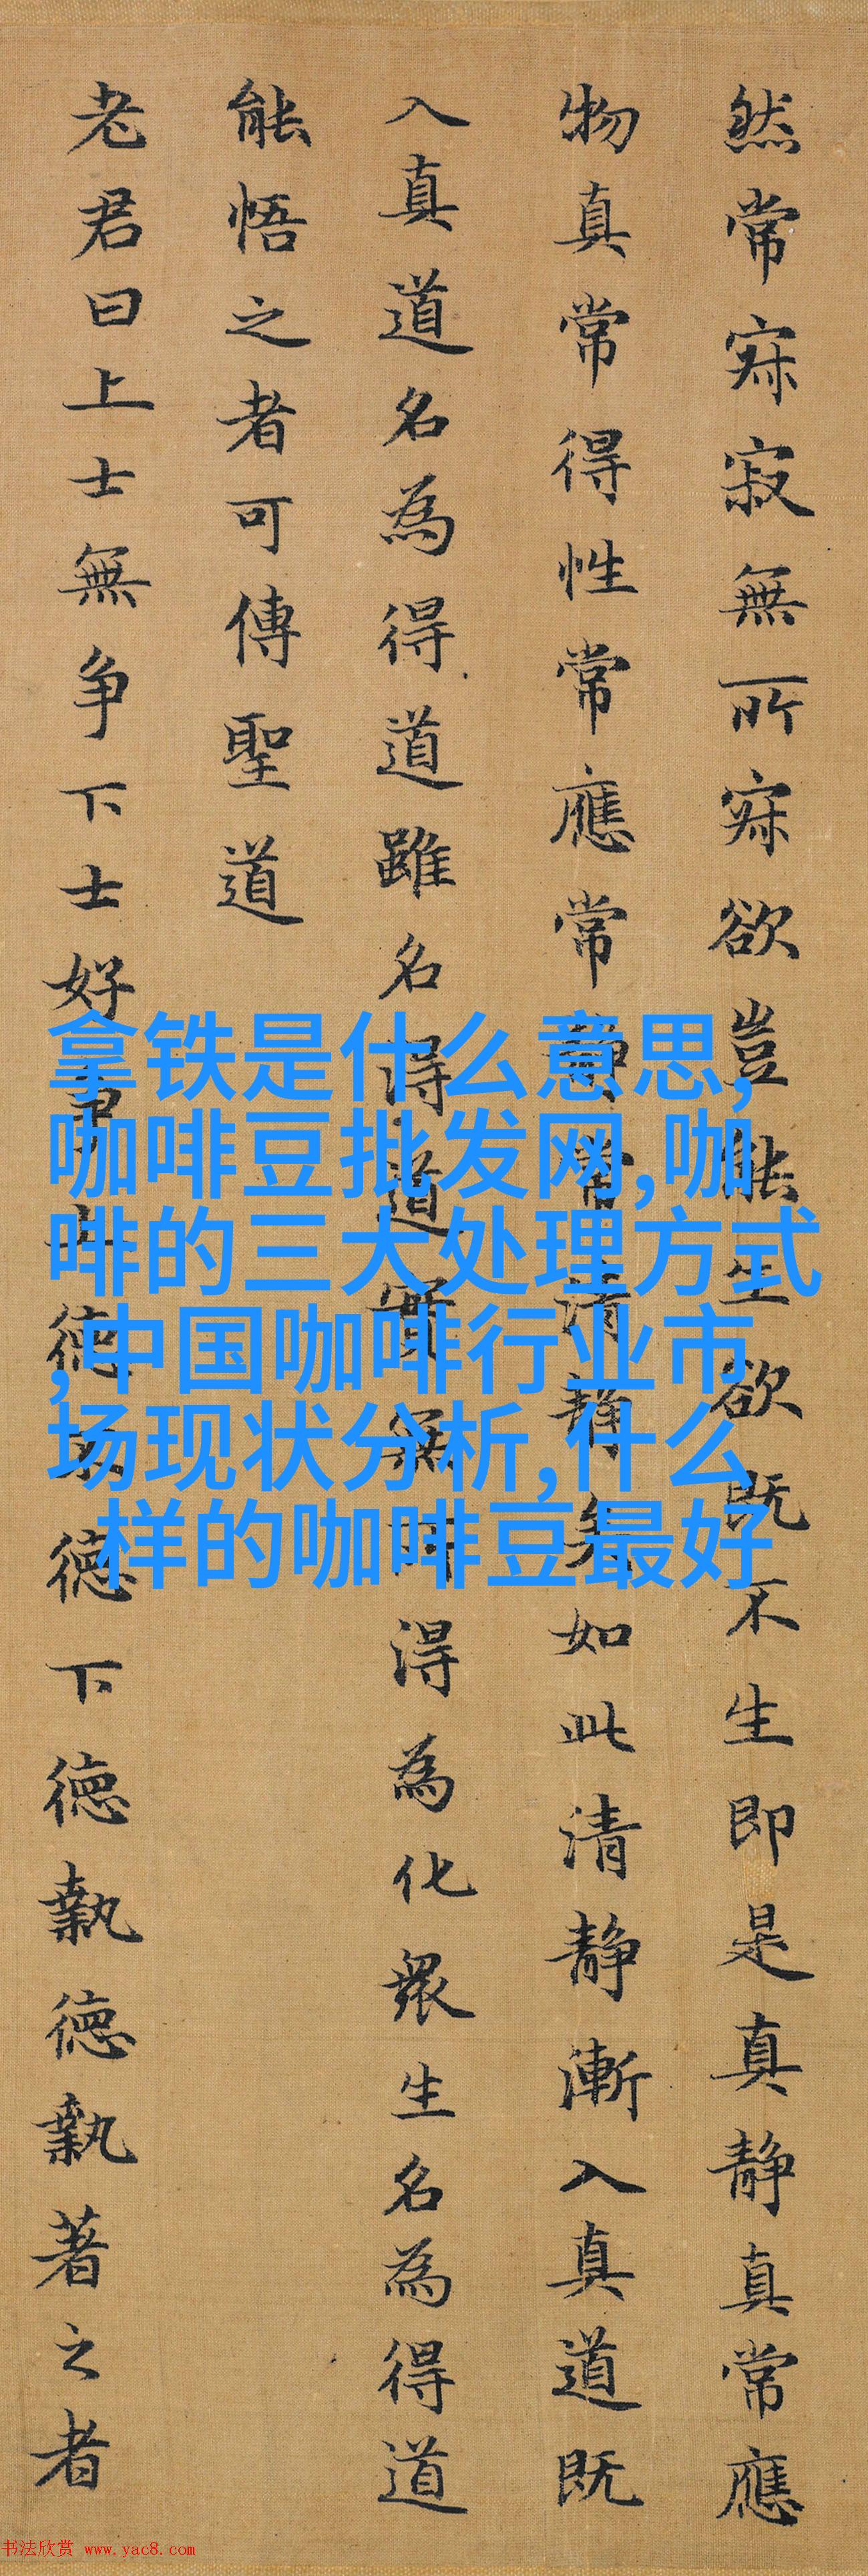 然常寂寂無所寂欲豈能生欲既不生即是真静真常應
物真常得性常應常静常清静矣如此清静漸入真道既
入真道名為得道雖名得道實無所得為化衆生名為得道
能悟之者可傳聖道
老君曰上士無争下士好争上德不德下德執德執著之者
拿铁是什么意思,
咖啡豆批发网,咖
啡的三大处理方式
,中国咖啡行业市
场现状分析,什么
样的咖啡豆最好
书法欣赏 www.yac8.com